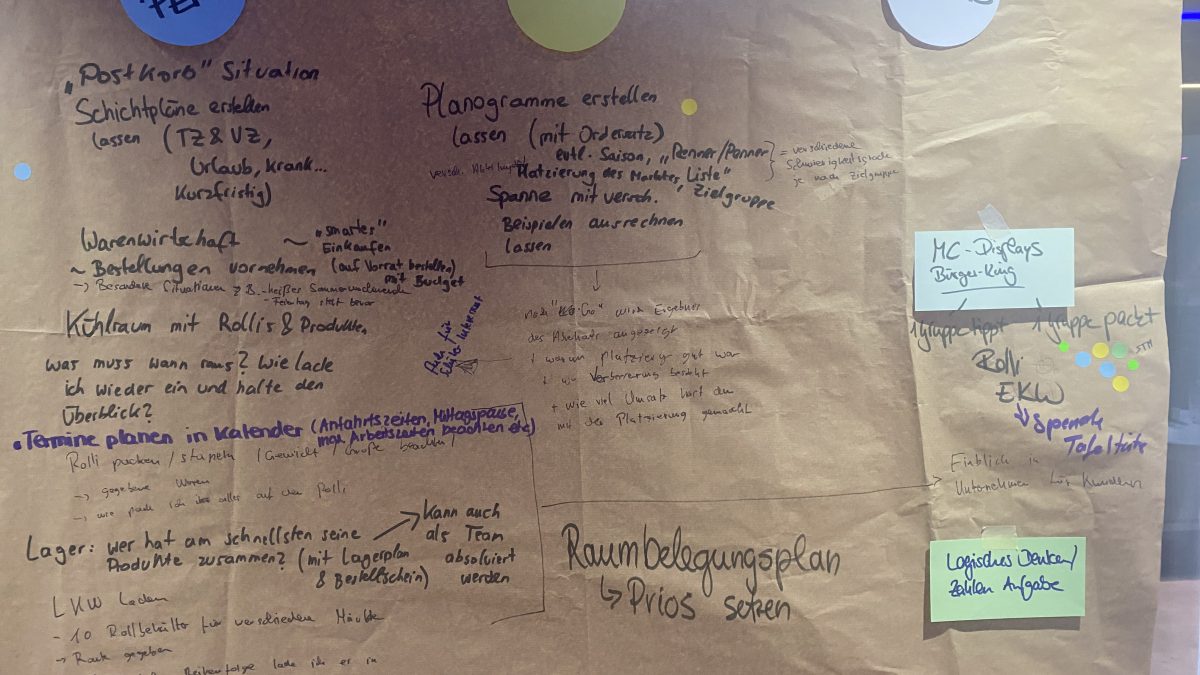 „Postkorb" Situation
Schichtpläne erstellen
lassen (TZ & VZ,
Urlaub, krank...
Kurzfristig)
Warenwirtschaft ~ „smartes"
Einkaufen
~ Bestellungen vornehmen (auf Vorrat bestellen)
mit Budget
-> Besondere Situationen z.B. heißer Sommerwochenende
- Feiertag steht bevor
Kühlraum mit Rollis & Produkten
was muss wann raus? Wie lade
ich wieder ein und halte den
Überblick?
• Termine planen in Kalender (Anfahrtszeiten, Mittagspause,
Arbeitszeiten beachten etc)
Rolli packen / stapeln / Gewicht / Größe beachten /
-> gegebene Waren
-> wie pack ich das alles auf den Rolli
Lager: wer hat am schnellsten seine
Produkte zusammen? (mit Lagerplan
& Bestellschein)
Kann auch
als Team
absolviert
werden
LKW laden
- 10 Rollbehälter für verschiedene Märkte
-> Route gegeben
Reihenfolge lade ich er in
Planogramme erstellen
lassen (mit Ordersatz)
evtl. Saison, „Renner/Penner
Liste"
Platzierung des Marktes, Zielgruppe
= verschiedene
Schwierigkeitsgrade
je nach Zielgruppe
Spanne mit versch.
Beispielen ausrechnen
lassen
wird Ergebnis
des angezeigt
+ warum Platzierung gut war
+ wo Verbesserung besteht
+ wie viel Umsatz hast du
mit der Platzierung gemacht
Raumbelegungsplan
↳ Prios setzen
MC-Displays
Bürger-King
1 Gruppe tippt
1 Gruppe packt
Rolli
EKW
↳ Spende
Tafeltüte
Einblick in
Unternehmen für Kunden
Logisches Denken/
Zahlen Aufgabe